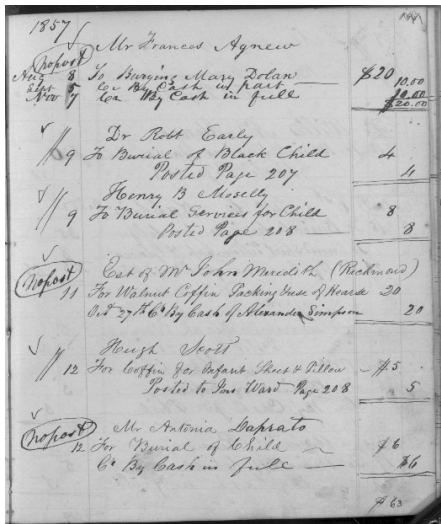 1857
Mr Frances Agnew
Nopost
Aug 8 To Burying Mary Dolan $20
Sept 5 Cr By Cash in part 10.00
Nov 7 Cr By Cash in full 10.00
$20.00
Dr Robt Early
" 9 To Burial of Black Child 4
Posted Page 207 4
Henry B Moselly
" 9 To Burial Services for Child 8
Posted Page 208 8
Est of Mr John Meredith (Richmond)
Nopost
11 For Walnut Coffin Packing use of Hearse 20
Oct 27th Cr By Cash of Alexander Simpson 20
Hugh Scott
" 12 For Coffin for Infant Sheet & Pillow $5
Posted to Page 208 5
Mr Antonia Daprato
Nopost
12 For Burial of Child $6
Cr By Cash in full $6
$63